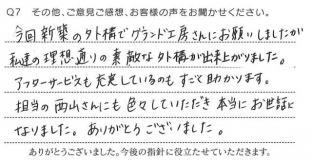 Q7 その他、ご意見ご感想、お客様の声をお聞かせください。
今回新築の外構でグランド工房さんにお願いしましたが
私達の理想通りの素敵な外構が出来上がりました。
アフターサービスも充実しているのもすごく助かります。
担当の西山さんにも色々していただき本当にお世話に
なりました。ありがとうございました。
ありがとうございました。今後の指針に役立たせていただきます。